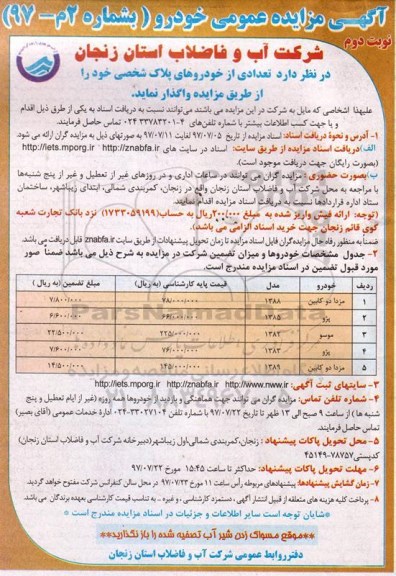 آگهـی مزایده عمومی خودرو ( بشماره ۲م-۹۷)
نوبت دوم
شرکت آب و فاضلاب استان زنجان
در نظر دارد تعدادی از خودروهای پلاک شخصی خود را
از طریق مزایده واگذار نماید.
علیهذا اشخاصی که مایل به شرکت در این مزایده می باشند می‌توانند نسبت به دریافت اسناد به یکی از طرق ذیل اقدام
و یا جهت کسب اطلاعات بیشتر با شماره تلفن‌های ۴-۳۳۷۸۳۲۰۱-۰۲۴ تماس حاصل فرمایند.
۱- آدرس و نحوۀ دریافت اسناد: اسناد مزایده از تاریخ ۹۷/۰۷/۰۵ لغایت ۹۷/۰۷/۱۱ به صورتهای ذیل به مزایده گران ارائه می شود.
الف) دریافت اسناد مزایده از طریق سایت: اسناد در سایت های http://znabfa.ir و http://iets.mporg.ir
(بصورت رایگان جهت دریافت موجود است).
ب) بصورت حضوری: مزایده گران می توانند در ساعات اداری و در روزهای غیر از تعطیل و غیر از پنج شنبه‌ها
با مراجعه به محل شرکت آب و فاضلاب استان زنجان واقع در زنجان، کمربندی شمالی، ابتدای زیباشهر، ساختمان
ستاد اداره قراردادها نسبت به دریافت اسناد مزایده اقدام نمایند.
(توجه: ارائه فیش واریز شده به مبلغ ۲۰۰/۰۰۰ریال به حساب(۱۷۳۳۰۵۹۱۹۹) نزد بانک تجارت شعبه
کوی قائم زنجان جهت خرید اسناد الزامی می باشد).
ضمناً به منظور رفاه حال مزایده گران فایل اسناد مزایده تا زمان تحویل پیشنهادات از طریق سایت znabfa.ir قابل دریافت می باشد.
۲- جدول مشخصات خودروها و میزان تضمین شرکت در مزایده به شرح ذیل می باشد ضمناً صور
مورد قبول تضمین در اسناد مزایده مندرج است.
ردیف خودرو مدل قیمت پایه کارشناسی (به ریال) مبلغ تضمین (به ریال)
۱ مزدا دو کابین ۱۳۸۸ ۷۸/۰۰۰/۰۰۰ ۷/۸۰۰/۰۰۰
۲ پژو ۱۳۸۵ ۶۶/۰۰۰/۰۰۰ ۶/۶۰۰/۰۰۰
۳ موسو ۱۳۸۳ ۲۲۵/۰۰۰/۰۰۰ ۲۲/۵۰۰/۰۰۰
۴ پژو ۱۳۸۳ ۷۶/۰۰۰/۰۰۰ ۷/۶۰۰/۰۰۰
۵ مزدا دو کابین ۱۳۸۹ ۱۴۵/۰۰۰/۰۰۰ ۱۴/۵۰۰/۰۰۰
۳- سایتهای ثبت آگهی: http://www.nww.ir و http://znabfa.ir و http://iets.mporg.ir
۴- شماره تلفن تماس: مزایده گران می توانند جهت هماهنگی و بازدید از خودروها همه روزه (غیر از ایام تعطیل و پنج
شنبه ها ) از ساعت ۹ صبح الی ۱۳ ظهر تا تاریخ ۹۷/۰۷/۲۲ با شماره تلفن ۳۳۰۲۷۱۰۴-۰۲۴ ادارۀ خدمات عمومی (آقای بصیر)
تماس حاصل فرمایند.
۵- محل تحویل پاکات پیشنهاد : زنجان،کمربندی شمالی،اول زیباشهر (دبیرخانه شرکت آب و فاضلاب استان زنجان)
کدپستی ۷۸۷۵۷-۴۵۱۴۹
۶- مهلت تحویل پاکات پیشنهاد: حداکثر تا ساعت ۱۵:۴۵ مورخ ۹۷/۰۷/۲۲
۷- زمان گشایش پیشنهادها: پیشنهادهای مربوطه رأس ساعت ۱۱ مورخ ۹۷/۰۷/۲۳ در محل سالن کنفرانس شرکت مفتوح خواهد گردید.
۸- پرداخت کلیه هزینه های متعلقه از قبیل انتشار آگهی ، دستمزد کارشناسی، و غیره ... به تناسب قیمت کارشناسی بعهده برندگان می باشد.
*شایان توجه است سایر اطلاعات و جزئیات در اسناد مزایده مندرج است *
**موقع مسواک زدن شیر آب تصفیه شده را باز نگذارید**
دفترروابط عمومی شرکت آب و فاضلاب استان زنجان